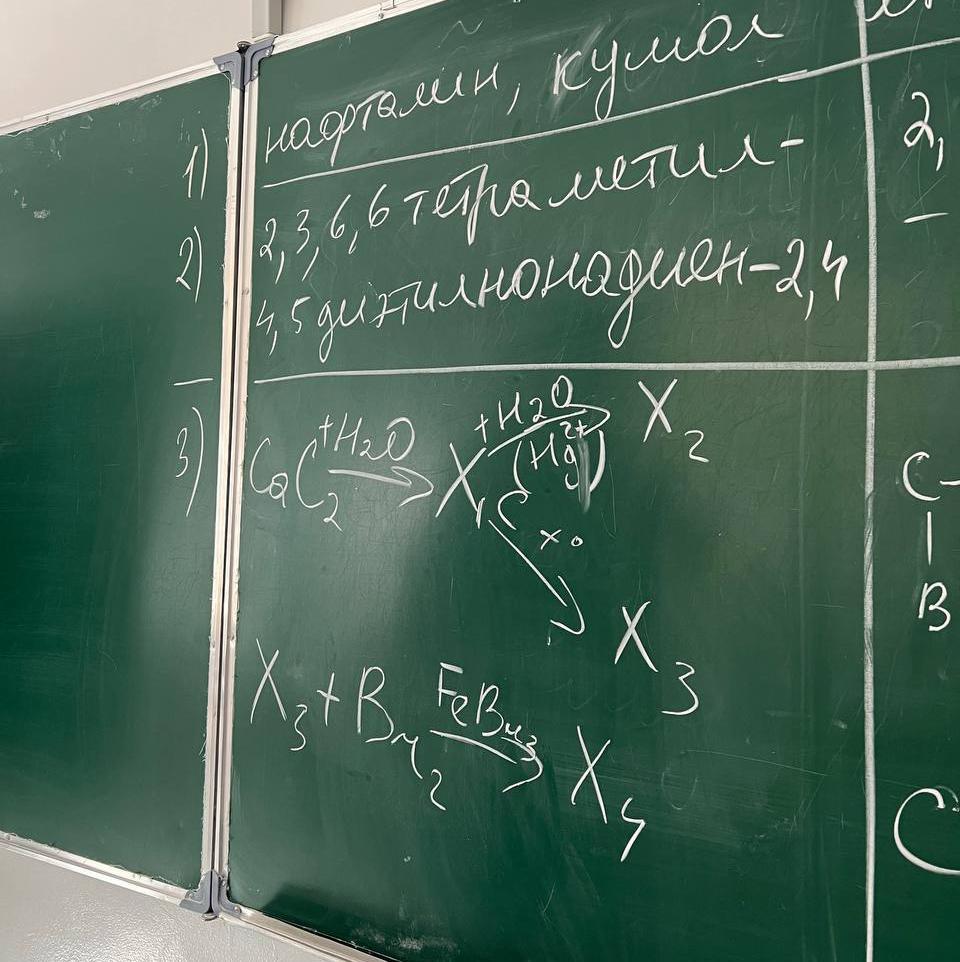 1) нафталин, кумол
2) 2,3,6,6 тетраметил-
4,5 диэтилнонадиен-2,4
3) CaC2 +H2O → X1 +H2O (Hg2+) → X2
C
X3
X3 + Br2 FeBr3 → X4
2,
C-
|
B
C